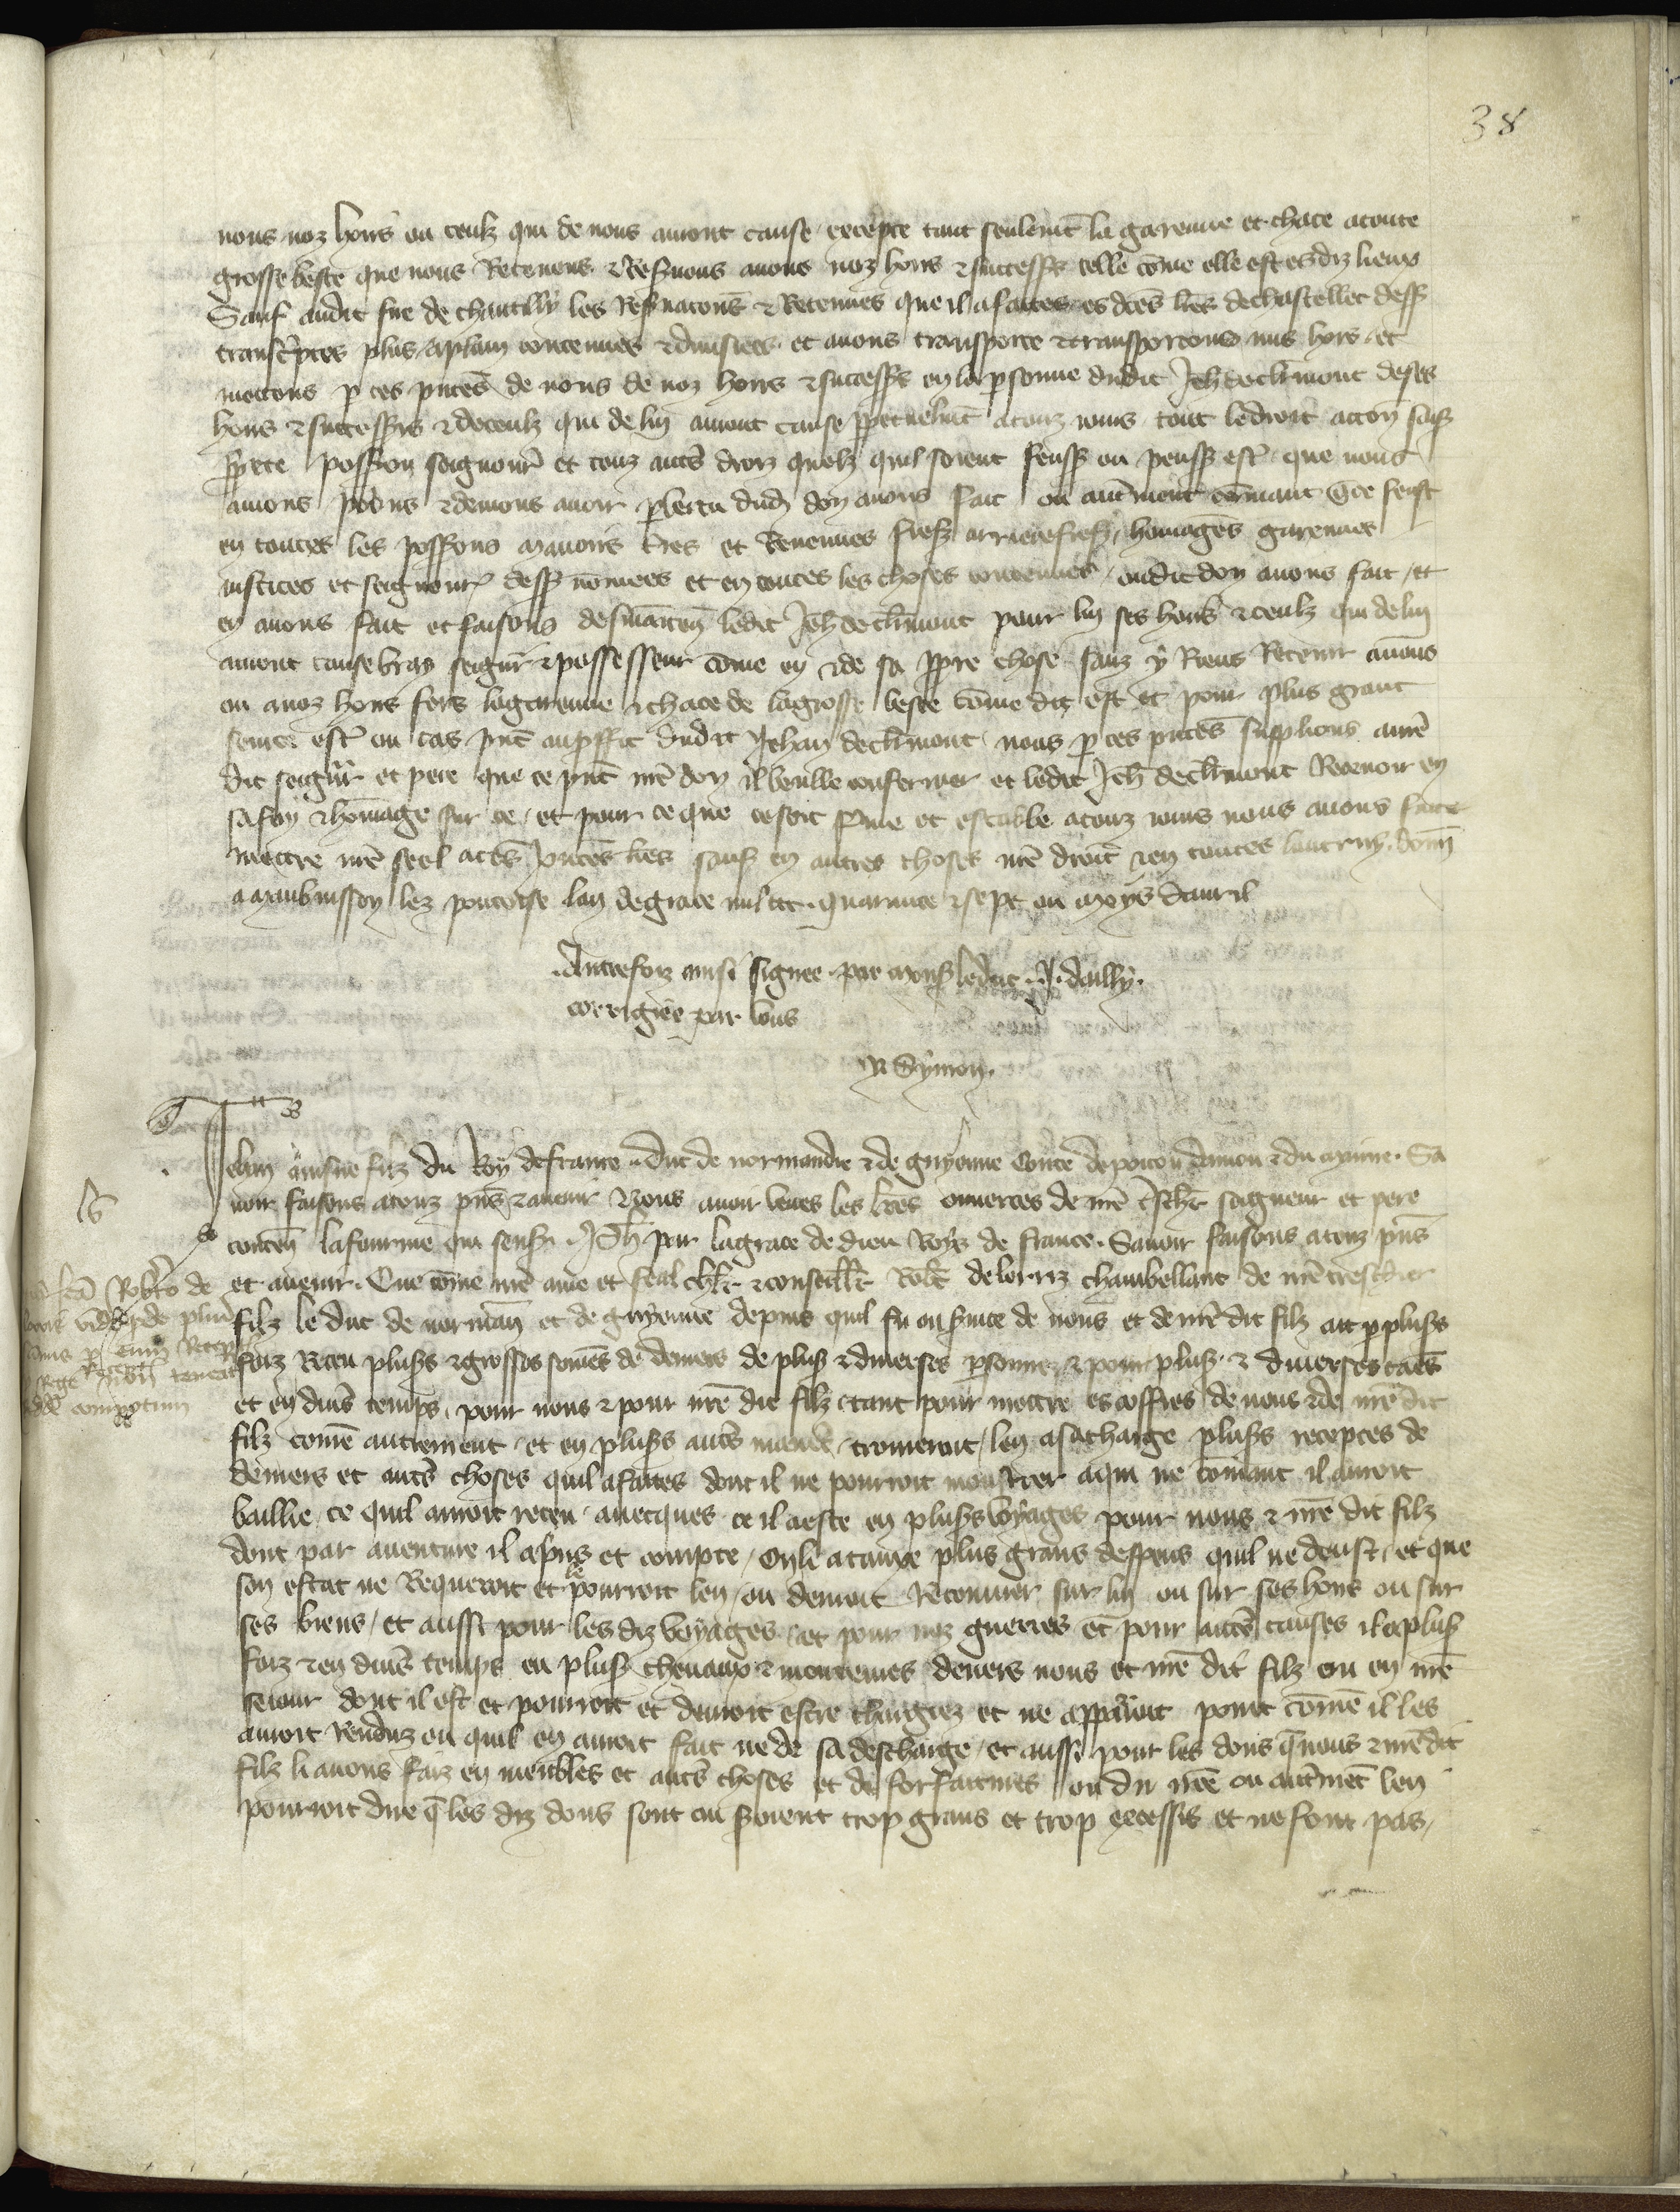 38
nous noz hoirs ou ceulz qui de nous auront cause excepte tant seulemt la garenne et chace a toute
grosse beste que nous Retenons & Reseruons a nous noz hoirs & successrs telle cōme elle est esdiz lieux
Sauf audit sire de chantilly les Reseruacons & Retenues que il a faictes es dces lres de chastellet dess
transcriptes plus a plain contenues & diuisees et auons transporte & transportons mis hors et
mettons p ces pntes de nous de noz hoirs & successrs en la psonne dudit Jeh de clmont de ses
hoirs & successrs & de ceulz qui de lui auront cause ppetuelmt a touz iours tout le droit accon sais
pprete possion seignourie et touz autres droiz quelz quil soient feuss ou peuss estre que nous
auons pouons & deuons auoir p vertu dud don a nous fait ou autrement cōmant que se feust
en toutes les possons manoirs tres et Reuenues fiefz arrierefiefz homages garennes
iustices et seignour dess nōmees et en toutes les choses contenues oudit don a nous fait et
en auons fait et faisons ledit Jeh de clmont pour lui ses hoirs & ceulz qui de lui
auront cause vray seignr & possesseur cōme en & de sa ppre chose sanz y Riens Retenir a nous
ou a noz hoirs fors la garenne & chace de la grosse beste cōme dit est et pour plus grant
seurte estre ou cas pnt au pffit dudit Jehan de clmont nous p ces pntes supplions a nre
dit seignr et pere que ce pnt nre don il veulle confermer et ledit Jeh de clmont Receuoir en
sa foy & hōmage sur ce et pour ce que ce soit ferme et estable a touz iours nous auons fait
mettre nre seel a ces pntes lres sauf en autres choses nre droit & en toutes lautruy donn
a maubuisson lez pontoise lan de grace mil ccc quarante & sept ou moys dauril
Autrefoiz ainsi signee par mons le duc J dailly
corrigiee par vous
Symon
Jehan ainsne filz du Roy de france duc de normandie & de guyenne Conte de poitou daniou & du maine Sa
uoir faisons a touz pns & auenir Nous auoir veues les lres ouuertes de nre tschr seigneur et pere
conten la fourme qui sensuit Ph par la grace de dieu Roys de france Sauoir faisons a touz pns
et auenir Que cōme nre ame et feal chlr & conseillr Robt de lorriz chambellant de nre treschier
filz le duc de norman et de guyenne depuis quil fu ou seruice de nous et de nre dit filz ait p plusrs
foiz Receu plusrs & grosses sōmes de deniers de plusrs & diuerses psonnes & pour plusrs & diuerses caes
et en diuers temps pour nous & pour nre dit filz tant pour mettre es coffres de nous & de nre dit
filz comē autrement et en plusrs autres maniere trouueroit len a sa charge plusrs receptes de
deniers et autres choses quil a faites dont il ne pourroit monstrer a qui ne cōmant il auroit
baillie ce quil auroit receu auecques ce il a este en plusrs voyages pour nous & nre dit filz
dont par auenture il a pris et compte ou li a tauxe plus grans despens quil ne deust et que
son estat ne Requeroit et le pourroit len ou deuroit Recouurer sur lui ou sur ses hoirs ou sur
ses biens et aussi pour les diz voyages et pour noz guerres et pour autres causes il a plusrs
foiz & en diuers temps eu plusrs cheuaux & monteures deuers nous et nre dit filz ou en nre
seiour dont il est et pourroit et deuroit estre chargiez et ne apparoit point comē il les
auroit Renduz ou quil en auroit fait ne de sa descharge et aussi pour les dons q nous & nredit
filz li auons faiz en meubles et autres choses et de forfaictures ou du nre ou autrmet len
pourroit dire q les diz dons sont ou seroient trop grans et trop excessis et ne font pas
Robto de
compotum